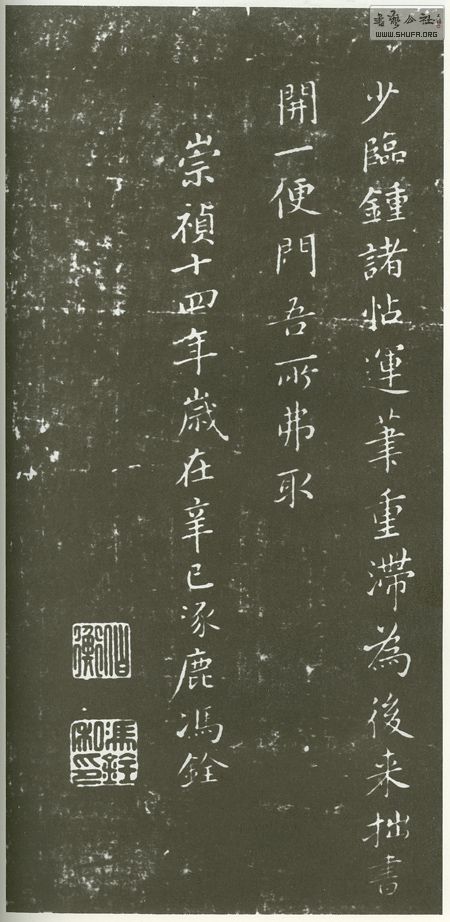 少臨鍾諸帖運筆重滯為後来拙書
開一便門吾所弗取
崇禎十四年歲在辛巳涿鹿馮銓
伯衡
馮銓私印
書藝公社
WWW.SHUFA.ORG